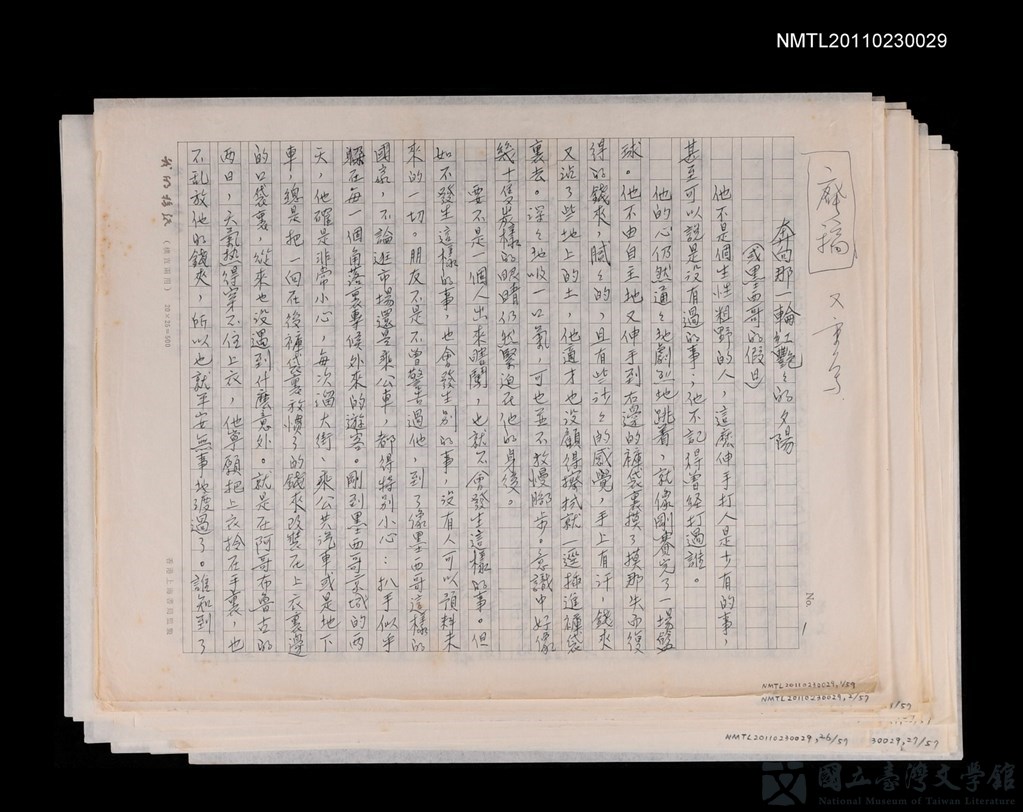 NMTL20110230029
廢稿
又字了
奔向那一輪紅艷々的夕陽
(或墨西哥的假日)
No. 1
他不是個生性粗野的人,這麼伸手打人是少有的事,
甚至可以說是沒有過的事;他不記得曾經打過誰。
他的心仍然通々地劇烈地跳着,就像剛賽完了一場籃
球。他不由自主地又伸手到右邊的褲袋裏摸了摸那失而復
得的錢夾,膩々的,且有些沙々的感覺,手上有汗,錢夾
又沾了些地上的土,他適才也沒顧得擦拭就一逕插進褲袋
裏去。深々地吸一口氣,可也並不放慢腳步。意識中好像
幾十隻炭樣的眼睛仍然緊迫在他的身後。
要不是一個人出來瞎闖,也就不會發生這樣的事。但
如不發生這樣的事,也會發生別的事,沒有人可以預料未
來的一切。朋友不是不曾警告過他,到了像墨西哥這樣的
國家,不論逛市場還是乘公車,都得特別小心:扒手似乎
躲在每一個角落裏專候外來的遊客。剛到墨西哥京城的兩
天,他確是非常小心,每次溜大街、乘公共汽車或是地下
車,總是把一向在後褲袋裏放慣了的錢夾改裝在上衣裏邊
的口袋裏,從來也沒遇到什麼意外。就是在阿哥布魯古的
兩日,天氣熱得穿不住上衣,他寧願把上衣拎在手裏,也
不亂放他的錢夾,所以也就平安無事地渡過了。誰知到了
我的稿紙 (教育團用) 25×20=500
香港上海書局監製
NMTL20110230029,1/57
NMTL20110230029,2/57
NMTL20110230029,26/57
30029,27/57
國立臺灣文學館
National Museum of Taiwan Literature